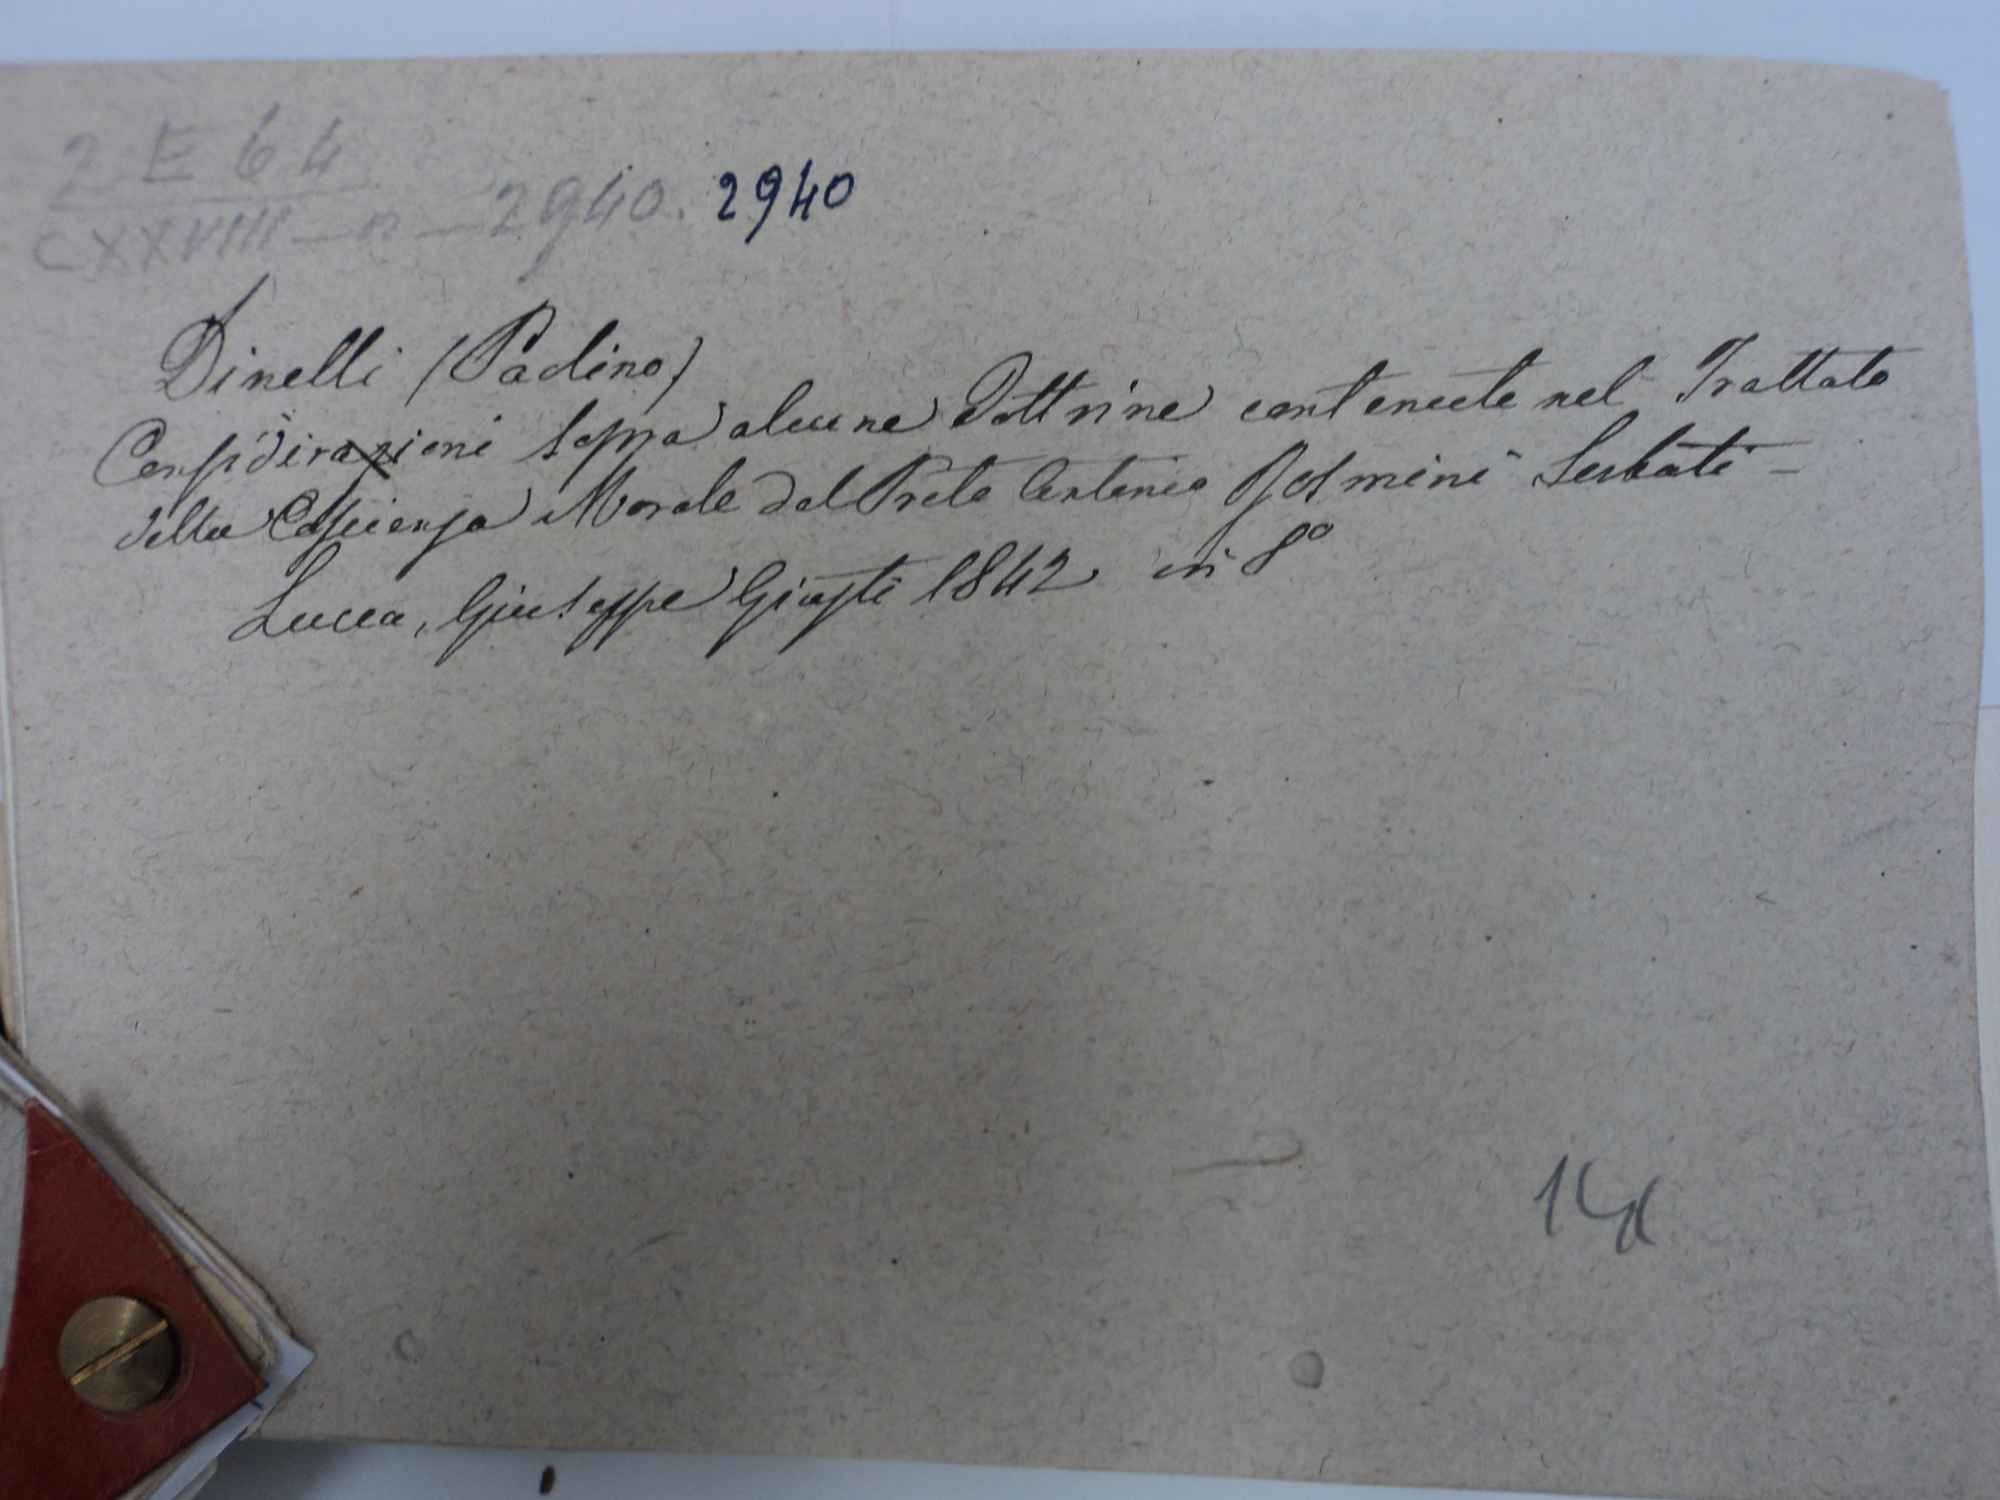 2 E 64
CXXVIII — n — 2940. 2940
Dinelli (Paolino)
Considirazioni sopra alcune Dottrine contenute nel Trattato
della Coscienza Morale del Prete Antonio Rosmini Serbati —
Lucca, Giuseppe Giusti 1842 in 8°